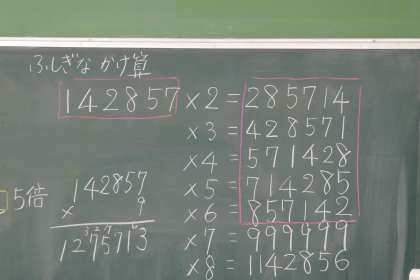 ふしぎな かけ算
142857 ×2 = 285714
×3 = 428571
×4 = 571428
×5 = 714285
×6 = 857142
×7 = 999999
×8 = 1142856
5倍
142857
× 9
1275713